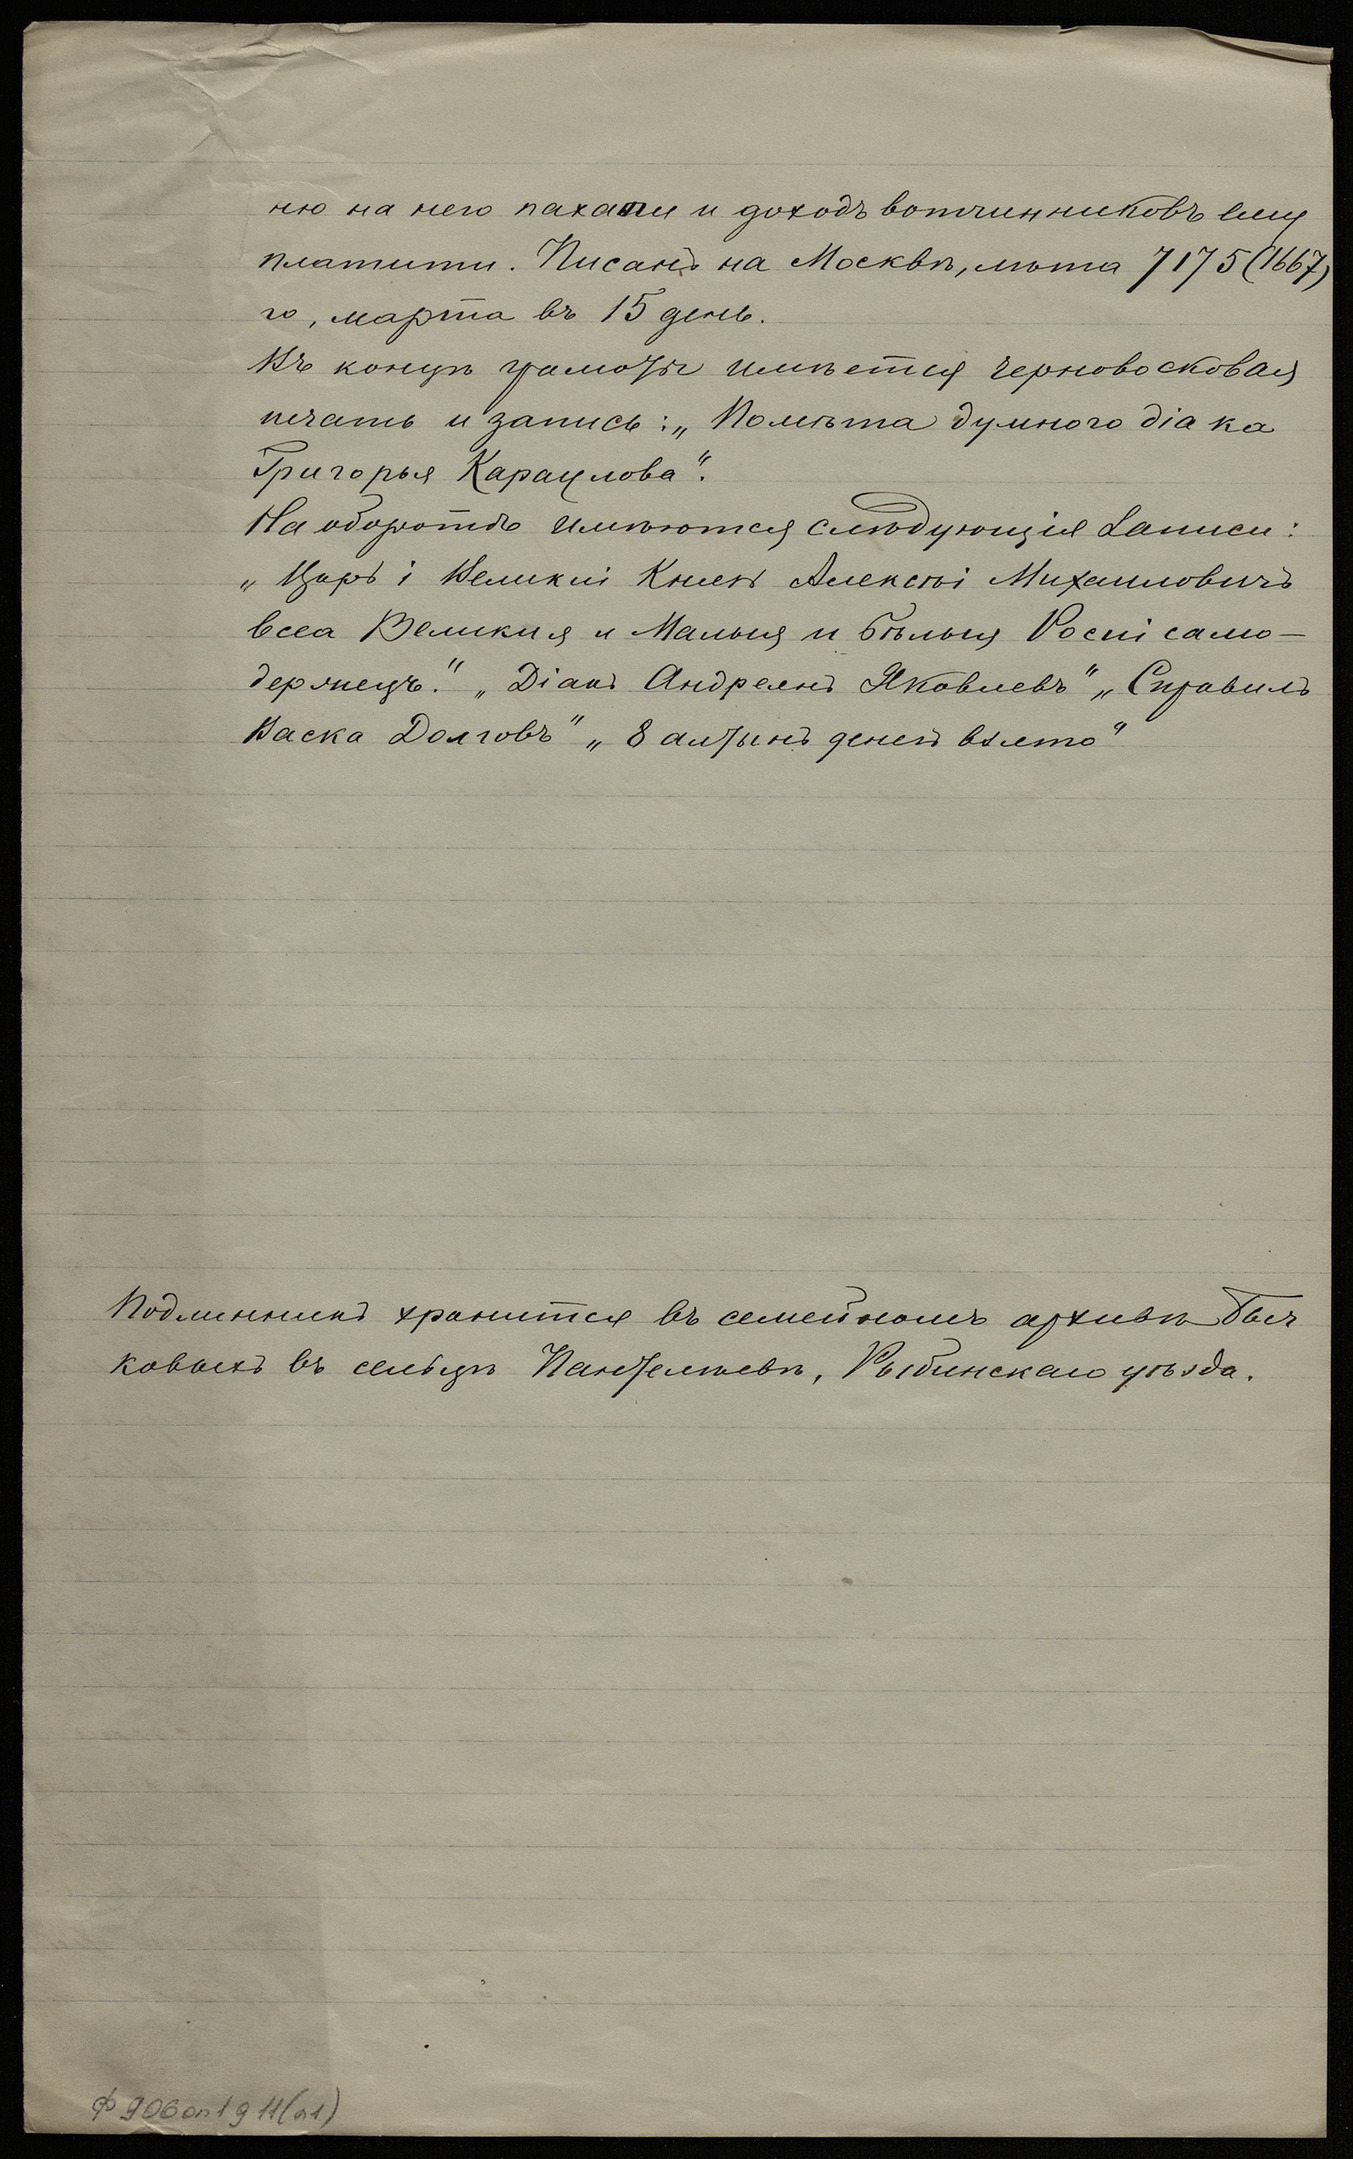 ню на него пахати и доходъ вотчинниковъ ему
платити. Писанъ на Москвѣ, лѣта 7175 (1667)
го, марта въ 15 день.
Въ концѣ грамоты имѣется черновосковая
печать и запись: „Помѣта думного діака
Григорья Караулова".
На оборотѣ имѣются слѣдующія записи:
„Царь і Великиі Князь Алексѣі Михаиловичъ
всеа Великия и Малыя и Бѣлыя Росиі само-
держецъ." „Діакъ Андреянъ Яковлевъ" „Справилъ
Васка Долговъ" „8 алтынъ денегъ взято"
Подлинникъ хранится въ семейномъ архивѣ Быч
ковыхъ въ сельцѣ Пантелѣевѣ, Рыбинскаго уѣзда.
ф 906 оп 1 д 11 (л1)